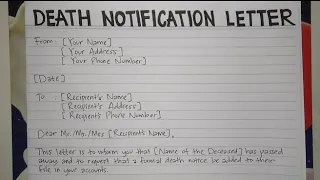 DEATH NOTIFICATION LETTER
From: [Your Name]
[Your Address]
[Your Phone Number]
[Date]
To: [Recipient's Name]
[Recipient's Address]
[Recipient's Phone Number]
Dear Mr./Ms./Mrs [Recipient's Name],
This letter is to inform you that [Name of the Deceased] has passed
away, and to request that a formal death notice be added to their
file in your accounts.